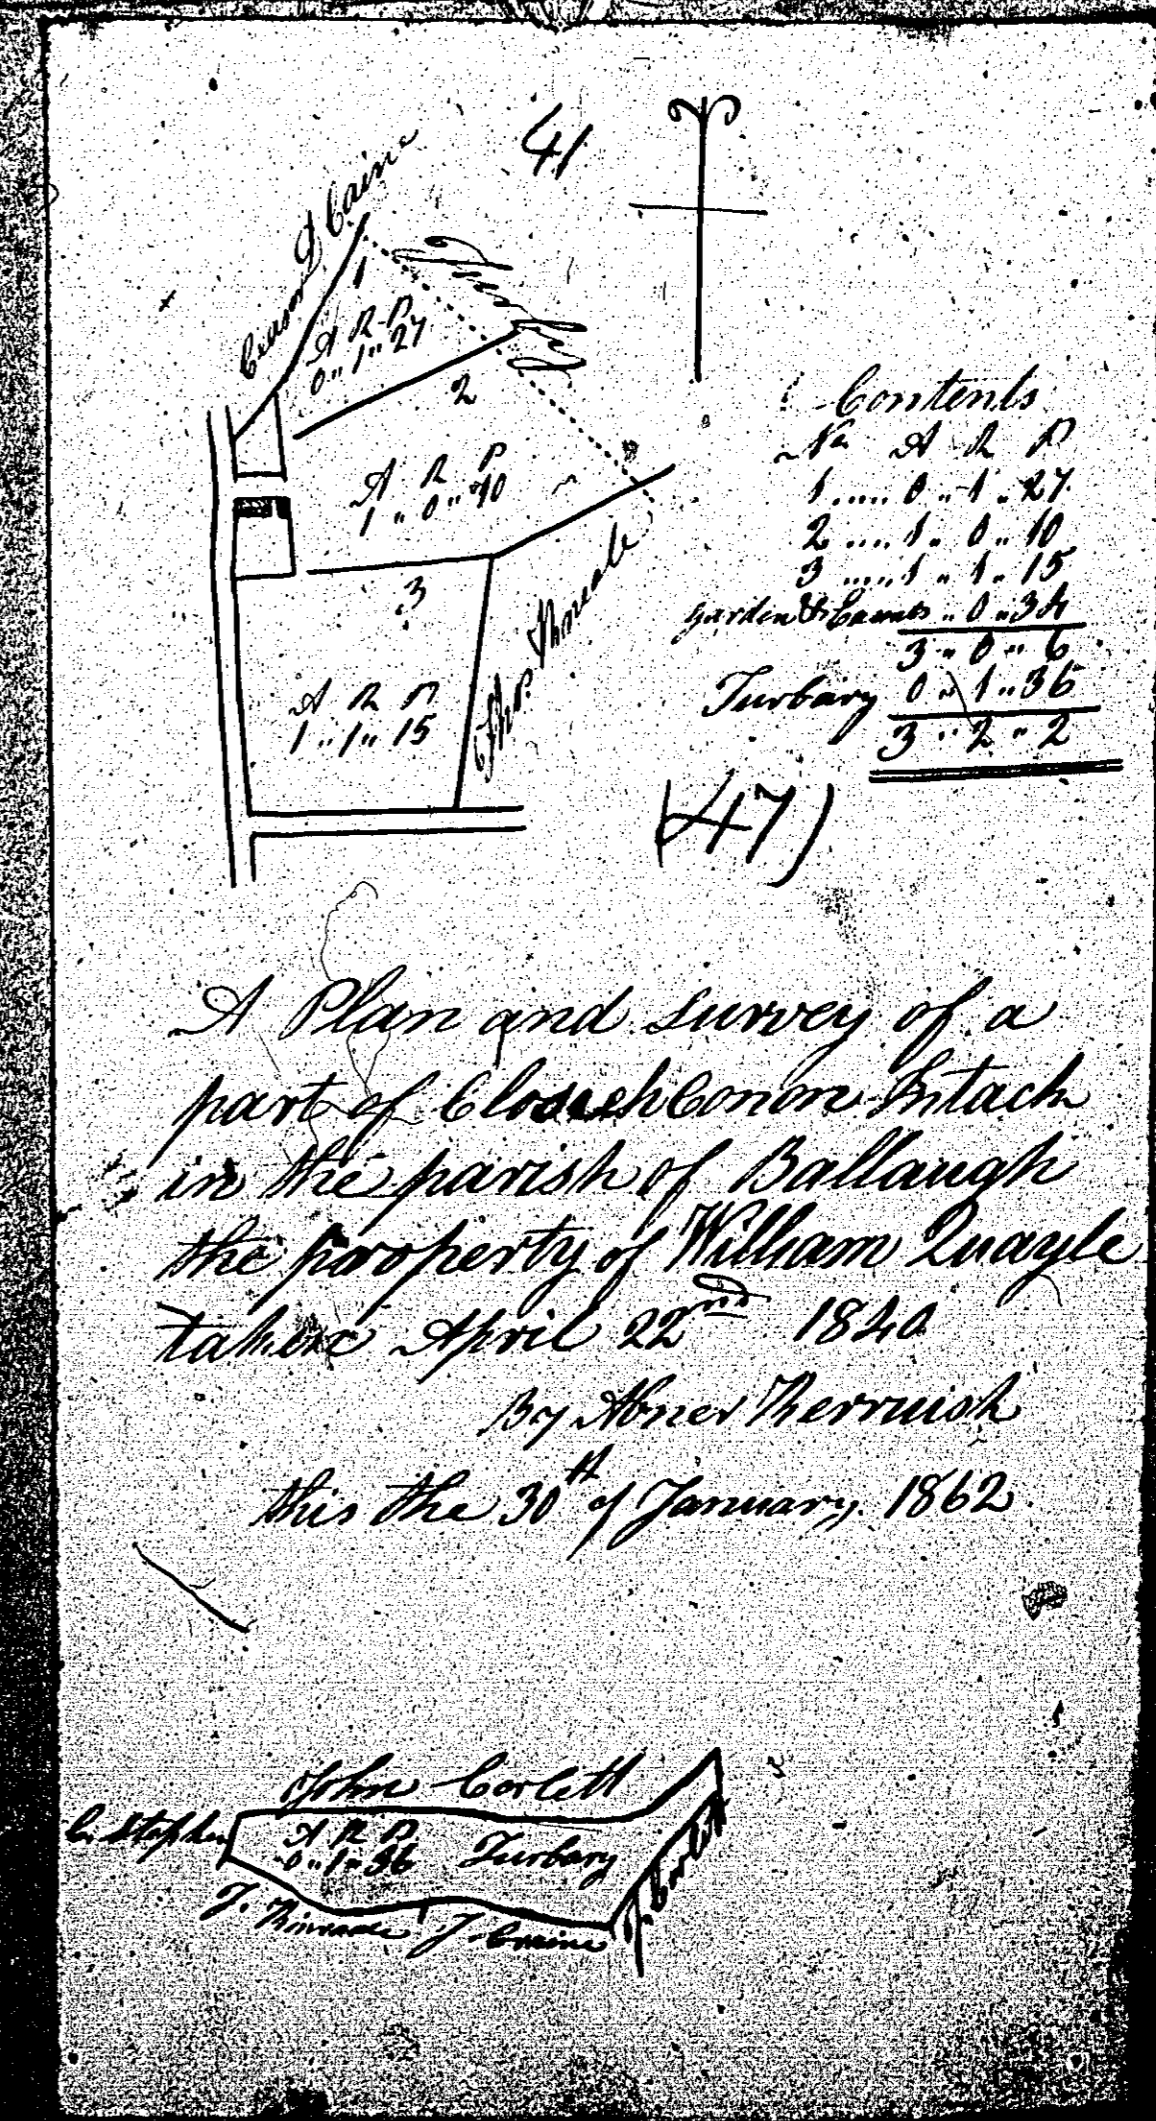 41
Caine
1
A R P
0 " 1 " 27
2
A R P
1 " 0 " 10
3
A R P
1 " 1 " 15
Thos. Kneale
Contents
No A R P
1 ..... 0 " 1 " 27
2 .... 1 " 0 " 10
3 ..... 1 " 1 " 15
garden & " 0 " 34
3 " 0 " 6
Turbary 0 " 1 " 36
3 " 2 " 2
(47)
A Plan and survey of a
part of Intack
in the parish of Ballaugh
the property of William Quayle
taken April 22nd 1840
By Abner Kerruish
this the 30th of January. 1862
John Corlett
Stephen
A R P
0 " 1 " 36 Turbary
J. Corlett
J. Kinrade J. Craine